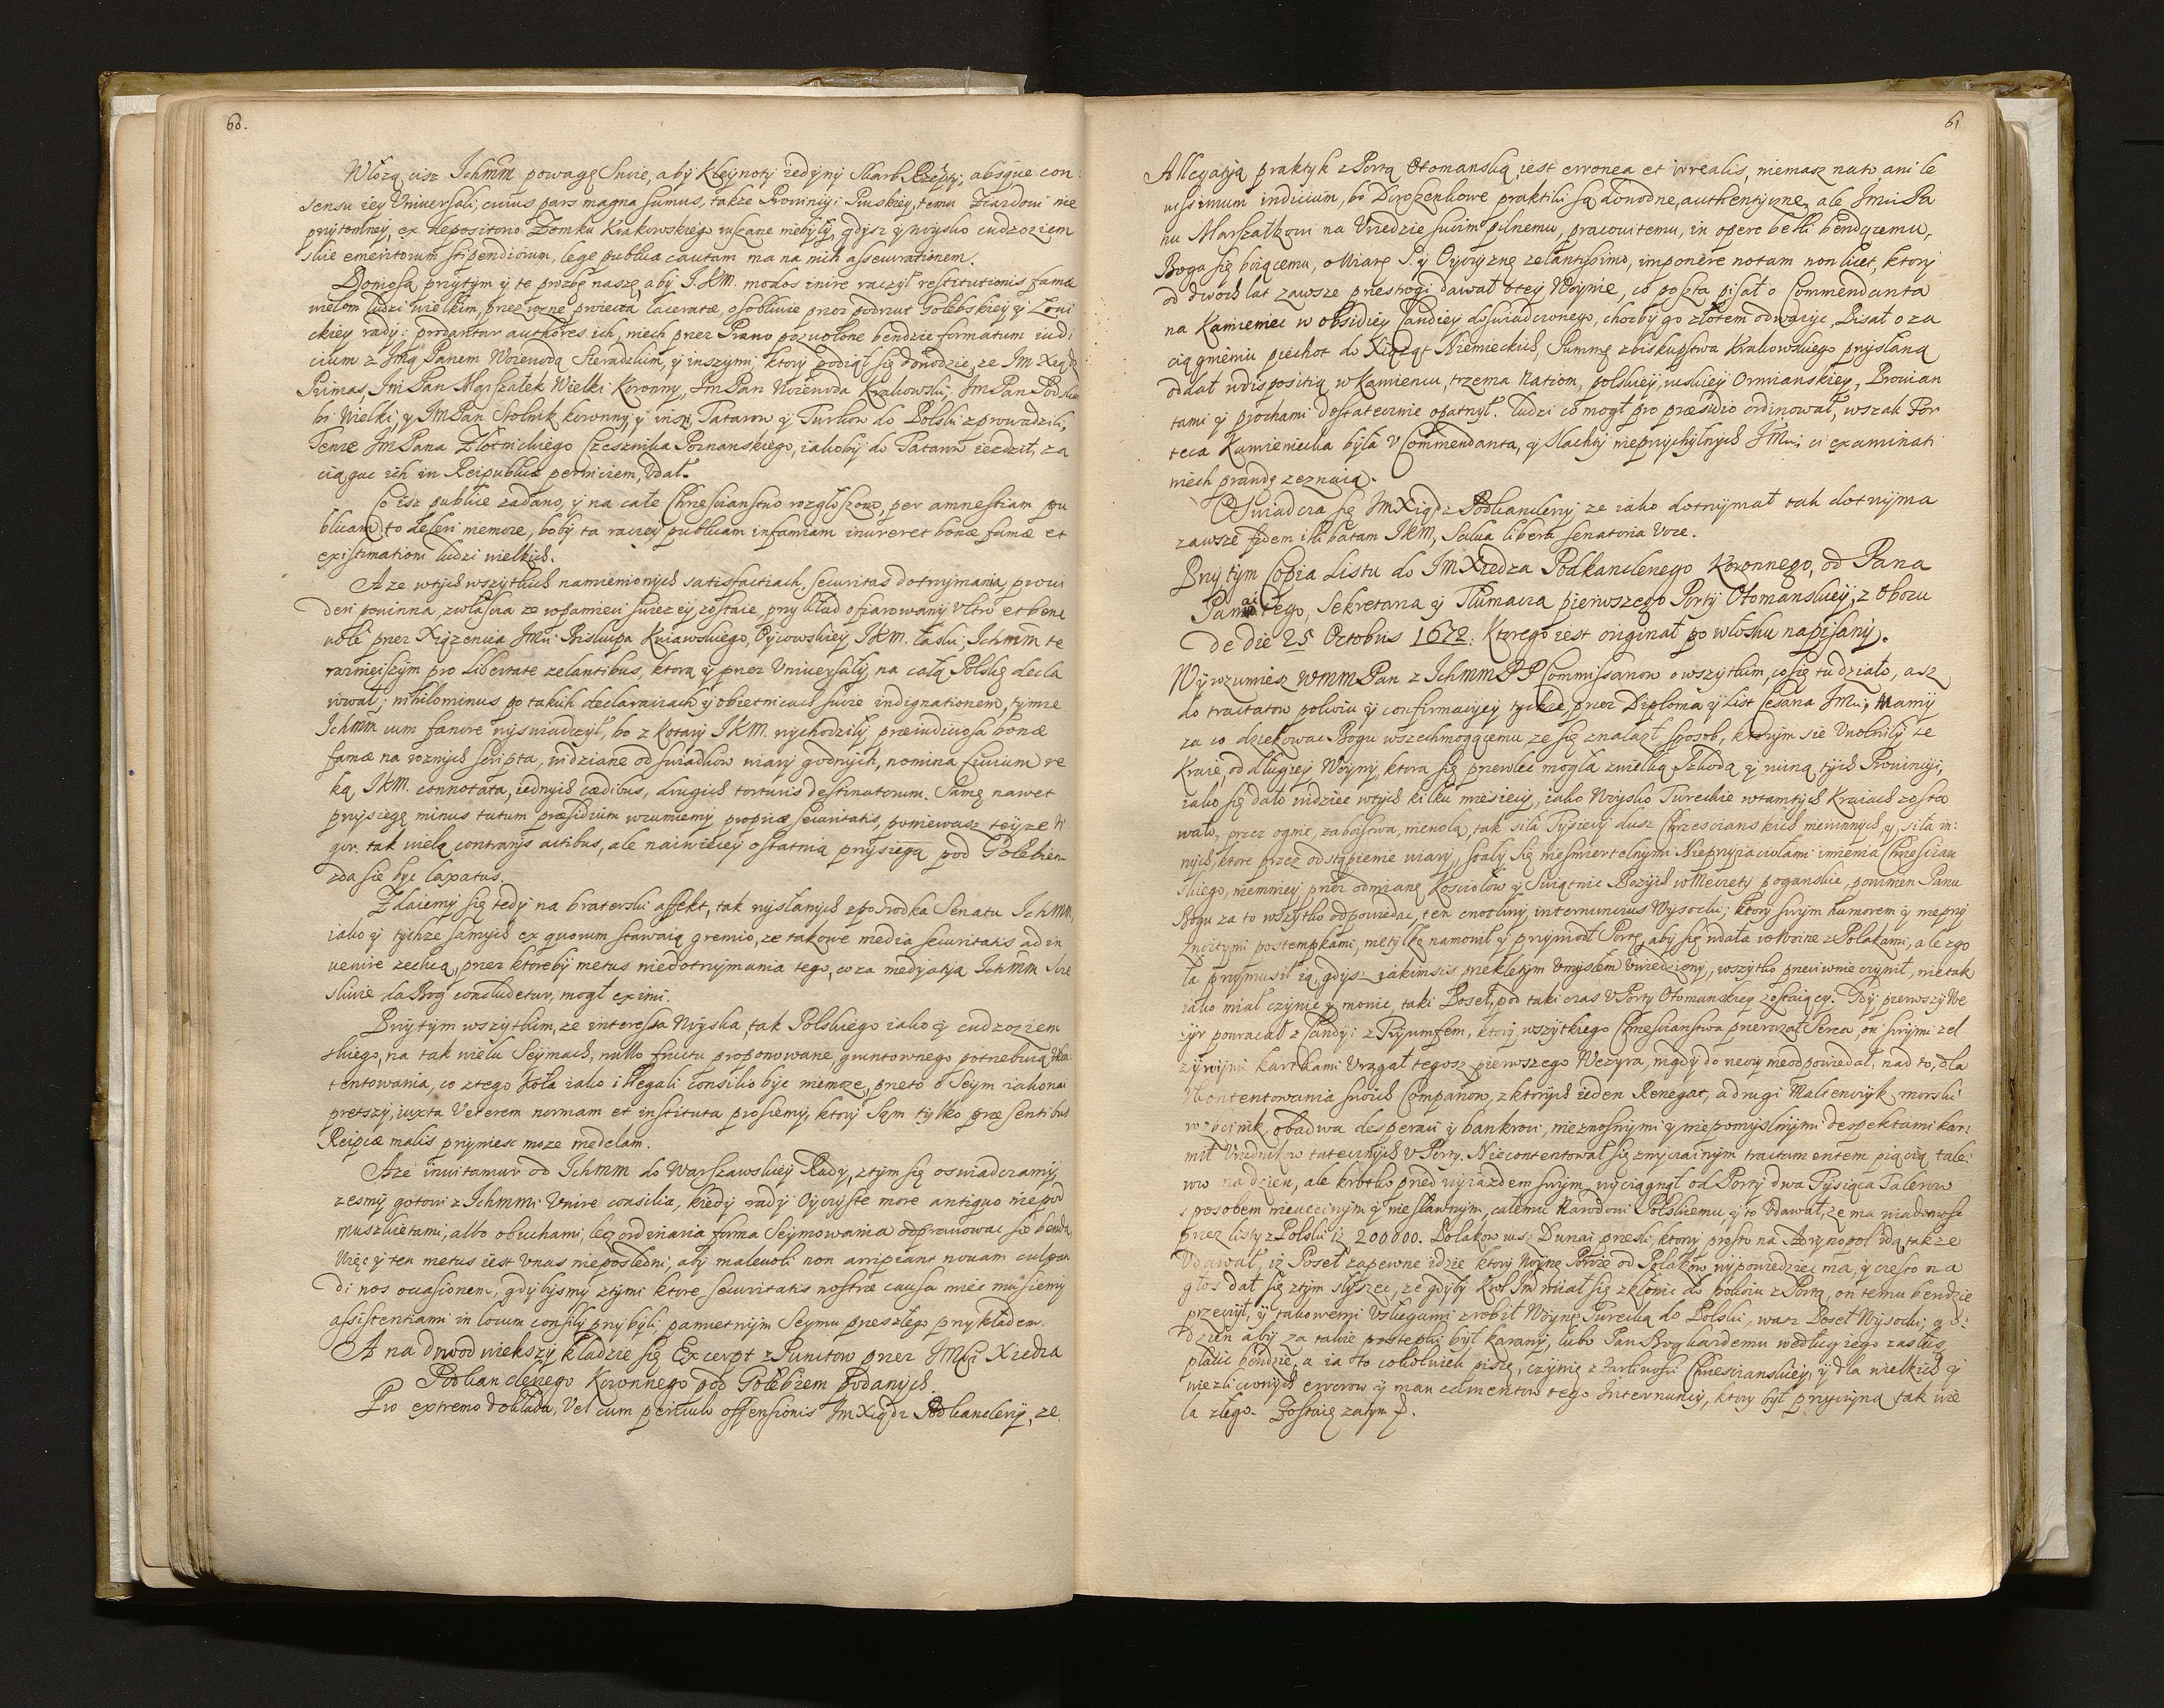 60.
Włożą cisz Ichmm powagę Swię, aby Kleynoty iedyny Skarb Rzeptey, absque con-
sensu iey Universali, cuius pars magna sumus, także Prowincyi Pruskiey, temu
przytomney, ex depositorio Zomku Krakowskiego ruszane niebyły, gdysz y woysko cudzoziem
skie emeritorum stipendiorum, lege publica cautam ma na nich assecurationem.
Doniosą przytym y te prozbę naszę, aby I.K.M. modos inire raczył restitutionis famæ
wielom ludzi wielkim, przez rozne proiecta laceratæ, osobliwie przez podrzut Gołebskiey y Łowi
ckiey rady: prodantur authores ich, niech przez Prawo pozwolone bendzie formatum iudi
cium z Imę Panem Woiewodą Sieradzkim, y inszymi, ktory podiął się dowodzic, ze Im Xiądz
Primas, Im Pan Marszałek Wielki Koronny, Im Pan Woiewoda Krakowski, Im Pan Podskar
bi Wielki, y Im Pan Stolnik koronny, y inszy, Tatarow y Turkow do Polski zprowadzili,
Tenze Im Pana Złotnickiego Czesznika Poznanskiego, iakoby do Tatarow iezdzit, za
ciągac ich in Reipublicæ perniciem, Udał.
Co isz publice zadano, y na całe Chrzescianstwo rozgłoszono, per amnestiam pu
blicam to deleri niemoze, boby ta raczey publicam infamiam inureret bonæ famæ et
existimationi ludzi wielkich.
Aze wtych wszytkich namienionych satisfactiach, securitas dotrzymania, provi
deri powinna, zwłaszcza ze wpamieci swiezey zostaie, przykład ofiarowany ultro et bene
vole przez Xiążencia Imci Biskupa Kuiawskiego, Oycowskiey IKM. łaski, Ichmm te
razniejszym pro libertate zelantibus, ktora y przez Uniwersały, na całą Polskę decla
rował; nihilominus po takich declaraciach y obietnicach swoie indignationem, tymze
Ichmm cum fœnore wyswiadczył, bo z Kotary IKM. wychodziły præiudiciosa bonæ
famæ na roznych scripta, widziane od swiadkow wiary godnych, nomina Civium re
ką IKM. connotata, iednych cædibus, drugich torturis destinatorum. Samę nawet
przysiegę minus tutum præsidium rozumiemy propriæ securitatis, poniewasz teyze
gor. tak wielą contrariis actibus, ale naiwiecey ostatnią przysiegą pod Gołebiem
zda sie byc laxatus.
Zdaiemy się tedy na braterski affekt, tak wysłanych zposrodka Senatu Ichmm,
iako y tychze samych ex quorum stawaią gremio, ze takowe media securitatis ad in
venire zechcą, przez ktoreby metus niedotrzymania tego, co za medyatią Ichmm
sliwie da Bog concludetur, mogł eximi.
Przytym wszytkim, ze interessa Woyska, tak Polskiego iako y cudzoziem
skiego, na tak wielu Seymach, nullo fructu proponowane, gruntownego potrzebuią Ukon
tentowania, co z tego Koła iako illegali Consilio byc niemoze, przeto o Seym iakonai
prętszy, iuxta Veterem normam et instituta prosiemy, ktory Sąm tylko præsentibus
Reipcæ malis przyniesc moze medelam.
Aze invitamur od Ichmm do Warszawskiey Rady, ztym się oswiadczamy,
zesmy gotowi z Ichmmi Unire consilia, kiedy rady Oyczyste more antiquo niepod
muszkietami, albo obuchami, lecz ordinaria forma Seymowania odprawowac sie bendą,
Więc y ten metus iest Unus nieposledni, aby malevoli non arripiant novam culpan
di nos occasionem, gdybysmy ztymi ktore securitatis nostræ causa miec musiemy
assistentiami in locum consilii przybyli, pamietnym Seymu przeszłego przykładem.
A na dowod wiekszy kładzie się Excerpt z Punctow przez IMci Xiedza
Podkanclerzego Koronnego pod Gołębiem podanych.
Pro extremo dokłada, Vel cum periculo offensionis Im Xiądz Podkanclerzy, ze
61
Allegatią praktyk z Portą Otomanską iest erronea et irrealis, niemasz nato, ani le
vissimum indicium, bo Doroszenkowe praktiki są dowodne, authentyczne, ale Imci Pa
nu Marszałkowi na Urzedzie swoim pilnemu, pracowitemu, in opere belli bendącemu,
Boga się boiącemu, o Wiarę S. y Oyczyznę zelantissimo, imponere notam non licet, ktory
od dwoch lat zawsze przestrogi dawał o tey Woynie, co poczta pisał o Commendanta
na Kamieniec w obsidiey Candiey doswiadczonego, chocby go złotem odwazyc, Pisał o za
ciągnieniu piechot do Xiążąt Niemieckich, Summę zbiskupstwa Krakowskiego przysłaną
oddał wdispositią w Kamiencu, trzema Nation, polskiey, ruskiey Ormianskiey, Prowian
tami y prochami dostatecznie opatrzył. Ludzi co mogł pro præsidio ordinował, wszak For
teca Kamieniecka była v Commendanta, y slachty nieprzychylnych IMci, ci examinati
niech prawdę zeznaią.
Oswiadcza się Im Xiądz Podkanclerzy ze iako dotrzymał tak dotrzyma
zawsze fidem illibatam IKM, Salva libera senatoria Voce.
Przytym Copia Listu do Im Xiedza Podkanclerzego Koronnego, od Pana
Panaiotego, Sekretarza y Tłumacza pierwszego Porty Otomanskiey, z Obozu
de die 25 Octobris 1672. Ktorego iest originał po włosku napisany.
Wyrozumiesz WMM Pan z Ichmm PP Commissarzow o wszytkim, co się tu działo, asz
do tractatow pokoiu y confirmacyey tychze, przez Diploma y List Cesarza IMci, Mamy
za co dziekowac Bogu wszechmogącemu, ze się znalazł sposob, ktorym sie Uwolniły te
Kraie, od dłuzszey Woyny, ktora się przewlec mogła zwielką Szkodą y ruiną tych Prowincyi,
iako się dało widziec wtych kilku miesiecy, iako Woysko Tureckie wtamtych Kraiach zosta
wało, przez ognie, zaboystwa, niewolą, tak siła Tysiecy dusz Chrzescianskich niewinnych, y siła in-
nych, ktore przez odstąpienie wiary, stały się niesmiertelnymi Nieprzyiaciołami imienia Chrzescian
skiego, niemniey przez odmianę Kosciołow y Swiątnic Bozych w Meczety poganskie, powinien Panu
Bogu za to wszytko odpowiedac, ten cnotliwy internuncius Wysocki; ktory swym humorem y nieprzy
zwoitymi postempkami, nietylko namowił y przywiodł Portę, aby się udała w Woinę z Polakami, ale zgo
ła przymusił ią, gdysz iakimsis przeklętym Umysłem Uwiedziony, wszytko przeciwnie czynił, nie tak
iako miał czynic y mowic, taki Poseł, pod taki czas v Porty Otomanskiey zostaiący. Gdy pierwszy We
zyr powracał z Candyi z Tryumfem, ktory wszytkiego Chrzescianstwa przerazał Serca, on swymi zel
zywymi kartkami Urągał tegosz pierwszego Wezyra, nigdy do rzeczy nieodpowiedał, nad to, dla
Ukontentowania swoich Companow, z ktorych ieden Renegat, a drugi Maltenczyk morski
rozboinik, obadwa desperaci y bankroci, nieznosnymi y niepomyslnymi despektami kar-
mił Urzednikow tatecznych v Porty. Niecontentował się zwyczainym tractamentem piącią tale-
row na dzien, ale krotko przed wyiazdem swym, wyciągnął od Porty dwa Tysiąca Talerow
sposobem niewcesnym y niesławnym, całemu Narodowi Polskiemu, y to Udawał, ze ma wiadomosc
przez listy z Polski iz 200000. Polakow wsz Dunai przeszli, ktory prosto na Adrynopol idą, takze
Udawał, iz Poseł zapewne idzie ktory Woynę Porcie od Polakow wypowiedziec ma, y czesto na
głos dał się ztym słyszec, ze gdyby Krol Im miał się zkłonic do pokoiu z Portą, on temu bendzie
przeczył, y takowemi Usługami zrobił Woynę Turecką do Polski, wasz Poseł Wysocki, go-
dzien aby za takie postepki był karany, lubo Pan Bog kazdemu według iego zasług
płacic bendzie, a ia to cokolwiek piszę, czynię z zarliwosci Chrzescianskiey, y dla wielkich y
niezliczonych errorow y mancamentow tego Internuncij, ktory był przyczyną tak wie
la złego. Zostaię zatym.